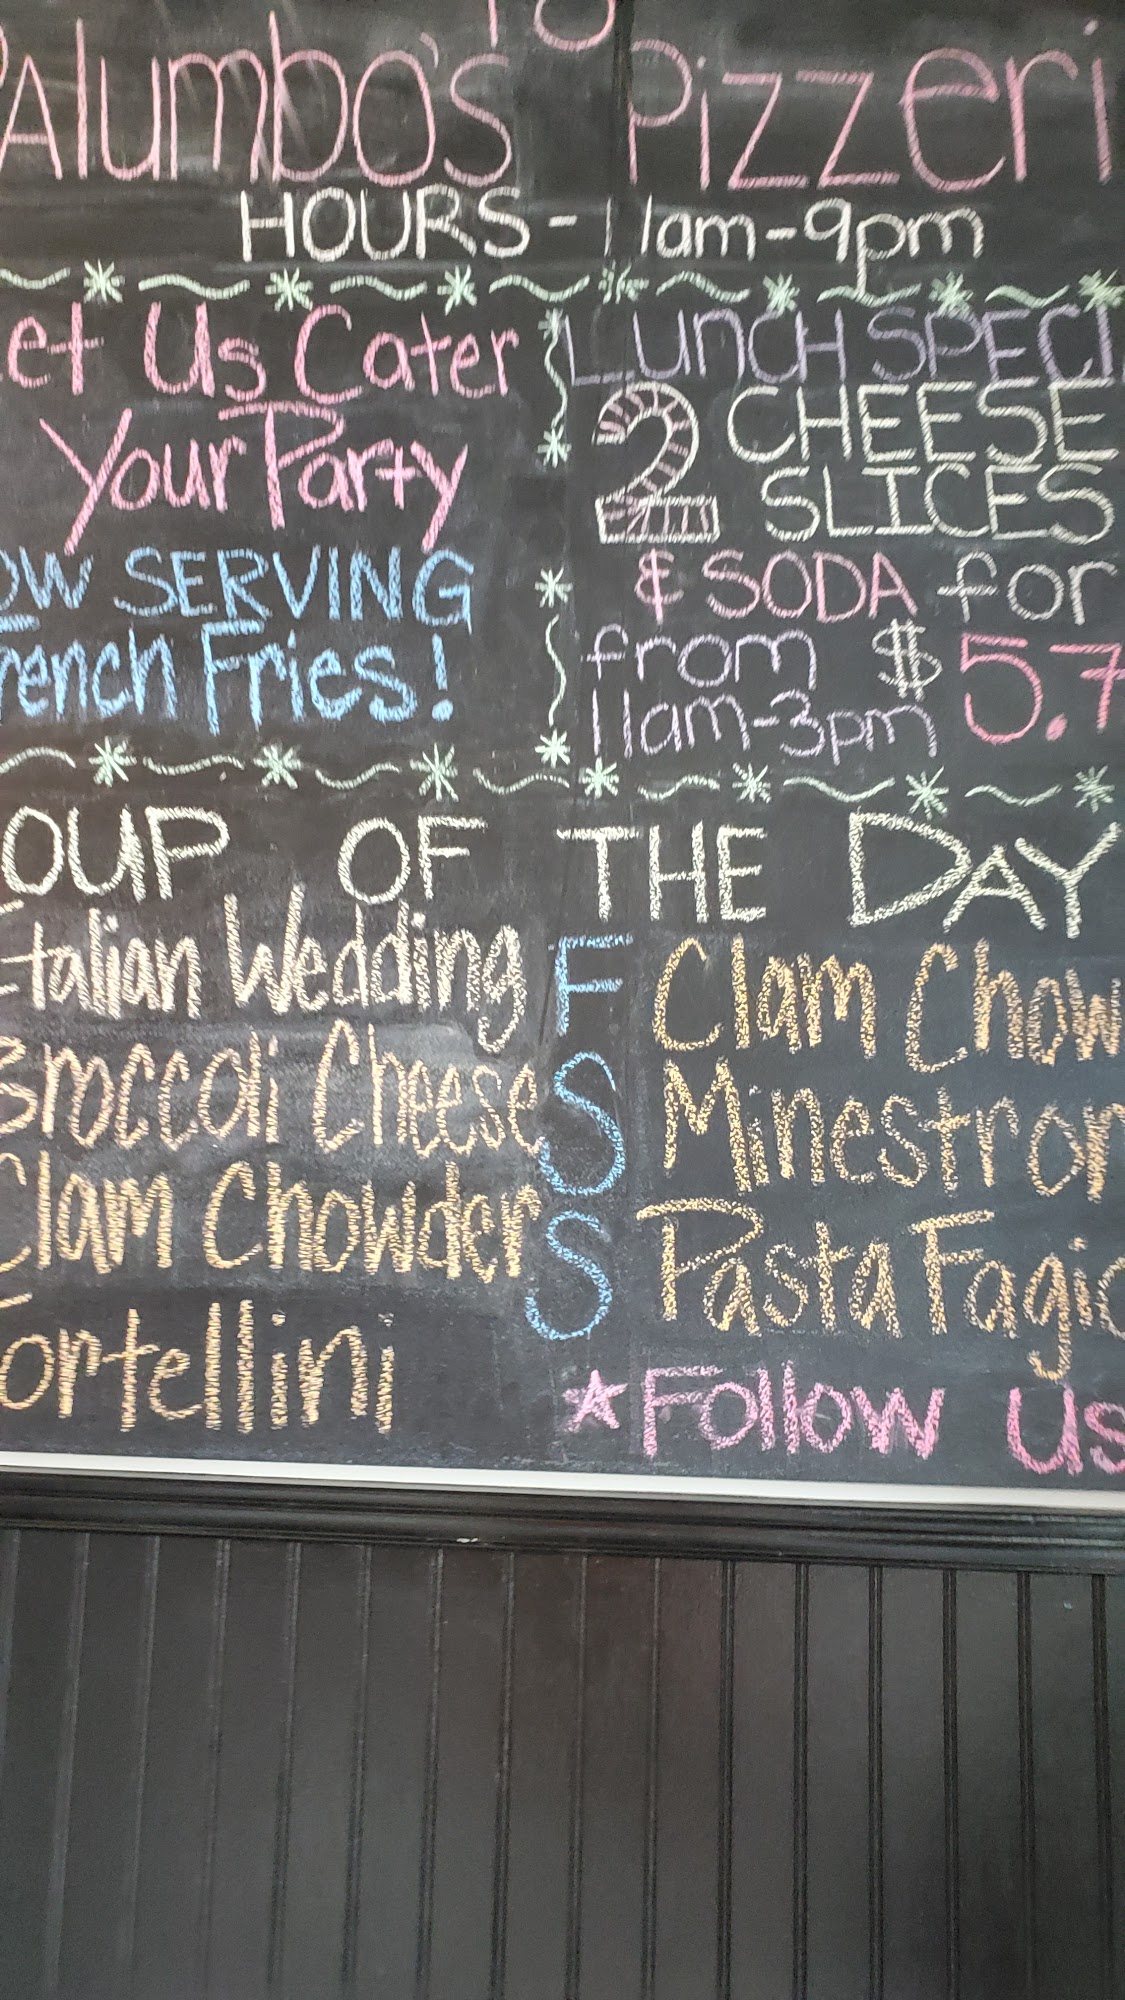 To
Palumbo's Pizzeri
HOURS - 11am-9pm
et Us Cater
Your Party
OW SERVING
rench Fries!
LUNCH SPECI
2 CHEESE
SLICES
& SODA for
from $5.7
11am-3pm
OUP OF THE DAY
Italian Wedding
Broccoli Cheese
Clam Chowder
Tortellini
F Clam Chow
S Minestron
S Pasta Fagio
Follow Us